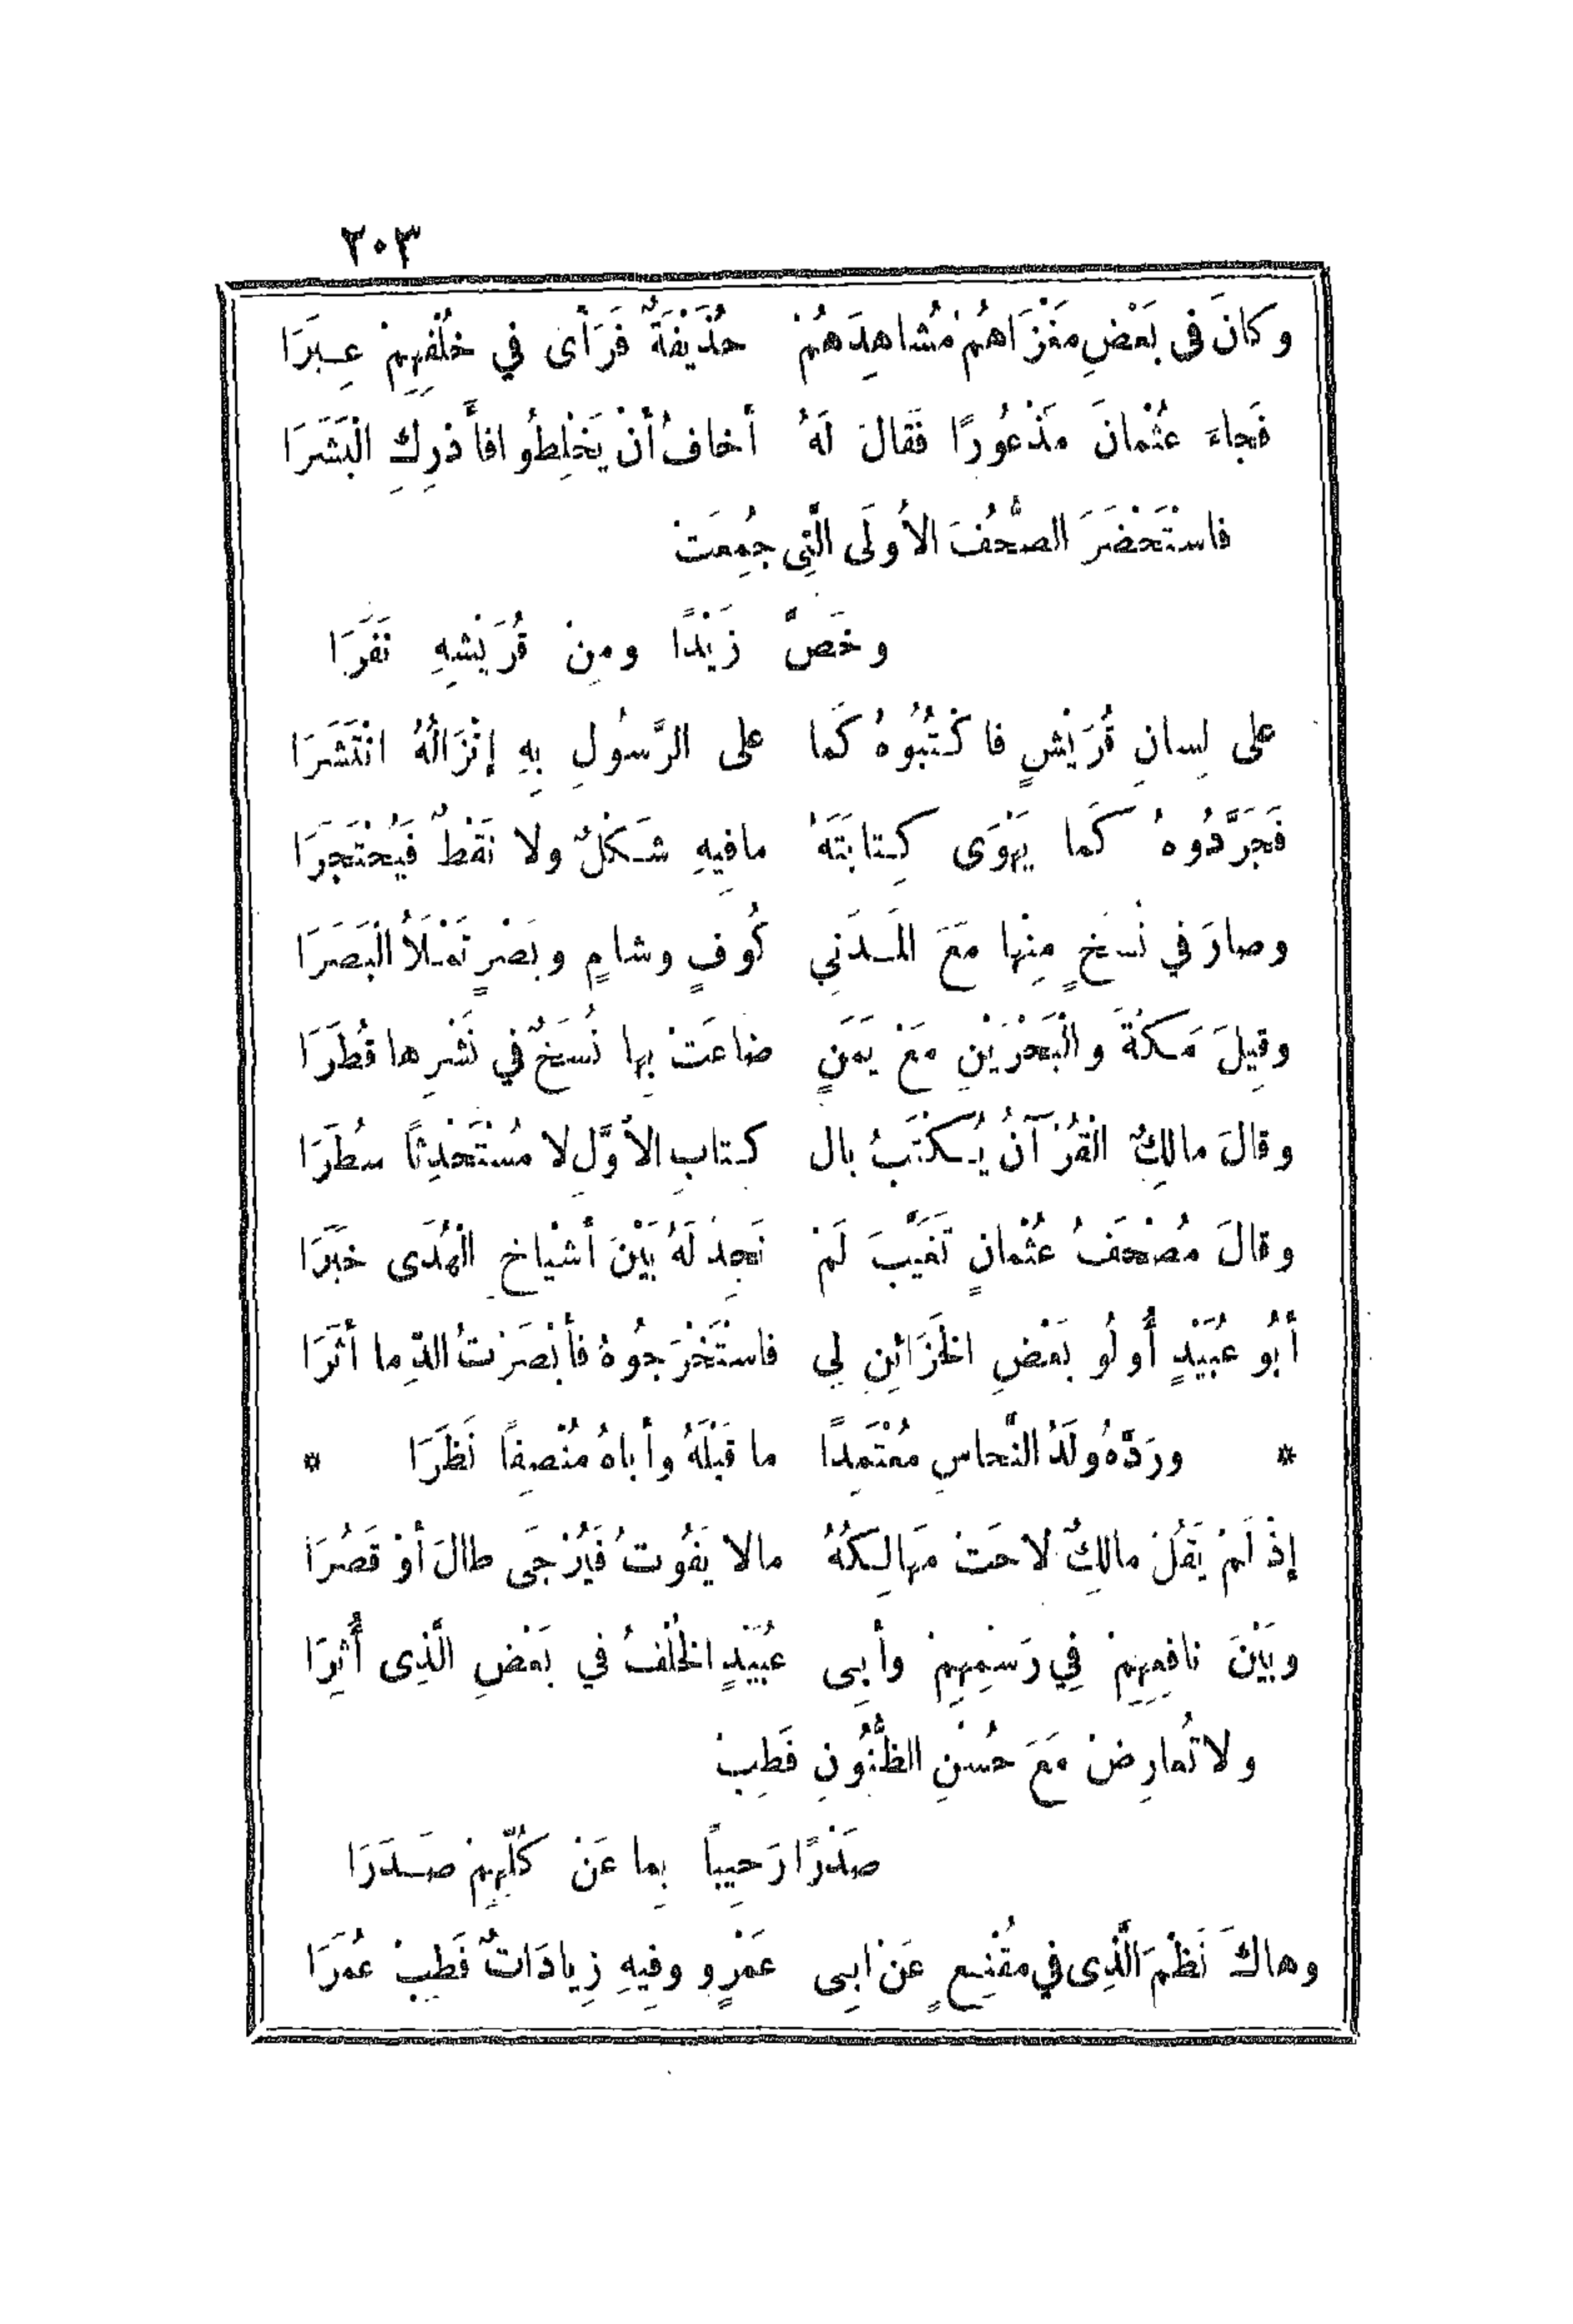 ٢٠٣
وكانَ في بَعْضِ مَغْزَاهُمْ مُشاهِدَهُمْ حُذَيْفَةٌ فَرَأى في خُلْفِهِمْ عِبَرَا
فَجاءَ عُثْمانَ مَذْعُورًا فَقالَ لَهُ أخافُ أنْ يَخْلِطُوا فأَدْرِكِ الْبَشَرَا
فاسْتَحْضَرَ الصُّحُفَ الأُولَى الَّتِي جُمِعَتْ
وخَصَّ زَيْدًا ومِنْ قُرَيْشِهِ نَفَرَا
على لِسانِ قُرَيْشٍ فاكْتُبُوهُ كَما على الرَّسُولِ بِهِ إنْزَالُهُ انْتَشَرَا
فَجَرَّدُوهُ كَما يَهْوَى كِتابَتَهُ مافِيهِ شَكْلٌ ولا نَقْطٌ فَيُحْتَجَرَا
وصارَ في نُسَخٍ مِنْها مَعَ الْمَدَنِي كُوفٍ وشامٍ وبَصْرٍ تَمْلَأُ الْبَصَرَا
وقِيلَ مَكَّةَ والْبَحْرَيْنِ مَعْ يَمَنٍ ضاعَتْ بِها نُسَخٌ في نَشْرِها قُطُرَا
وقالَ مالِكٌ الْقُرْآنُ يُكْتَبُ بال كتابِ الأوَّلِ لا مُسْتَحْدِثًا سُطِرَا
وقالَ مُصْحَفُ عُثْمانٍ تَغَيَّبَ لَمْ نَجِدْ لَهُ بَيْنَ أشْياخِ الْهُدَى خَبَرَا
أبُو عُبَيْدٍ أُولُو بَعْضِ الخَزَائِنِ لِي فاسْتَخْرَجُوهُ فأبْصَرْتُ الدِّما أثَرَا
* ورَدَّهُ ولَدُ النَّحاسِ مُعْتَمِدًا ما قَبْلَهُ وأباهُ مُنْصِفًا نَظَرَا *
إذْ لَمْ يَقُلْ مالِكٌ لاحَتْ مَهالِكُهُ مالا يَفُوتُ فَيُرْجَى طالَ أوْ قَصُرَا
وبَيْنَ نافِعِهِمْ فِي رَسْمِهِمْ وأبِى عُبَيْدٍ الخُلْفُ في بَعْضِ الَّذِى أُثِرَا
ولا تُعارِضْ مَعَ حُسْنِ الظُّنُونِ فَطِبْ
صَدْرًا رَحِيبًا بِما عَنْ كُلِّهِمْ صَدَرَا
وهاكَ نَظْمَ الَّذِى في مُقْنِعٍ عَنْ ابِى عَمْرٍو وفِيهِ زِيادَاتٌ فَطِبْ عُمَرَا